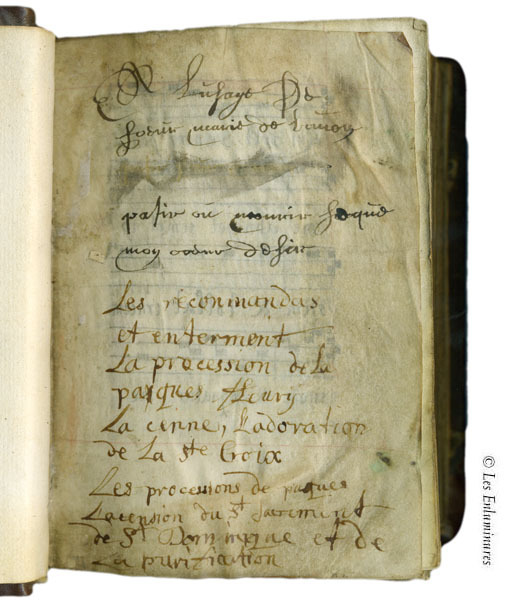 A Lusage De
Soeur marie de
patir ou mourir se que
mon coeur desire
Les recommandas
et enterment
La procession de la
pasques fleury
La cinne, Ladoration
de La Ste Croix
Les processions de pasques
Lacension du St sacrement
de St Dominique et de
La purification
© Les Enluminures